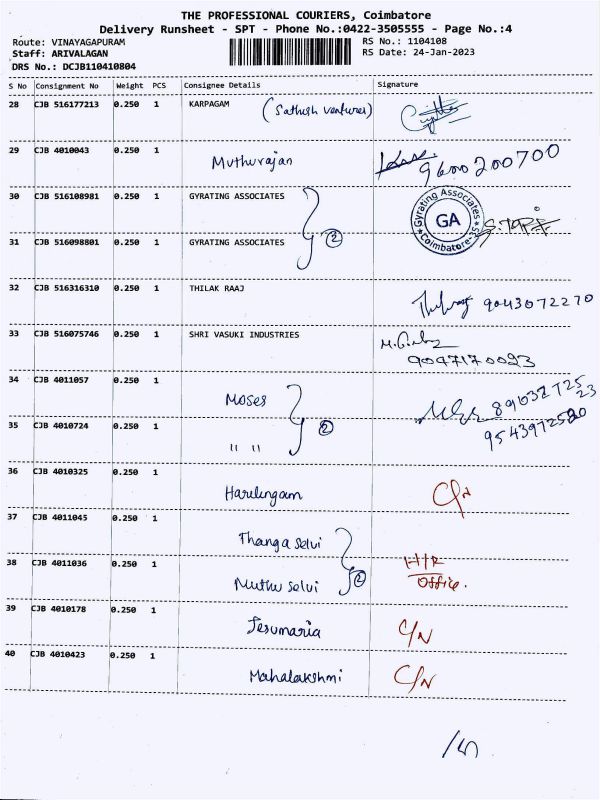 THE PROFESSIONAL COURIERS, Coimbatore
Delivery Runsheet - SPT - Phone No.:0422-3505555 - Page No.:4
Route: VINAYAGAPURAM RS No.: 1104108
Staff: ARIVALAGAN RS Date: 24-Jan-2023
DRS No.: DCJB110410804
S No Consignment No Weight PCS Consignee Details Signature
28 CJB 516177213 0.250 1 KARPAGAM (Sathish ventures)
29 CJB 4010043 0.250 1 Muthurajan 9600200700
30 CJB 516108981 0.250 1 GYRATING ASSOCIATES
Gyrating Associates GA Coimbatore-35
31 CJB 516098801 0.250 1 GYRATING ASSOCIATES 2
32 CJB 516316310 0.250 1 THILAK RAAJ 9043072270
33 CJB 516075746 0.250 1 SHRI VASUKI INDUSTRIES
9047170093
34 CJB 4011057 0.250 1 Moses
35 CJB 4010724 0.250 1 " " 2
36 CJB 4010325 0.250 1 Harilingam C/N
37 CJB 4011045 0.250 1 Thanga selvi
38 CJB 4011036 0.250 1 Muthu selvi 2 H/R Office.
39 CJB 4010178 0.250 1 Jesumaria C/N
40 CJB 4010423 0.250 1 Mahalakshmi C/N